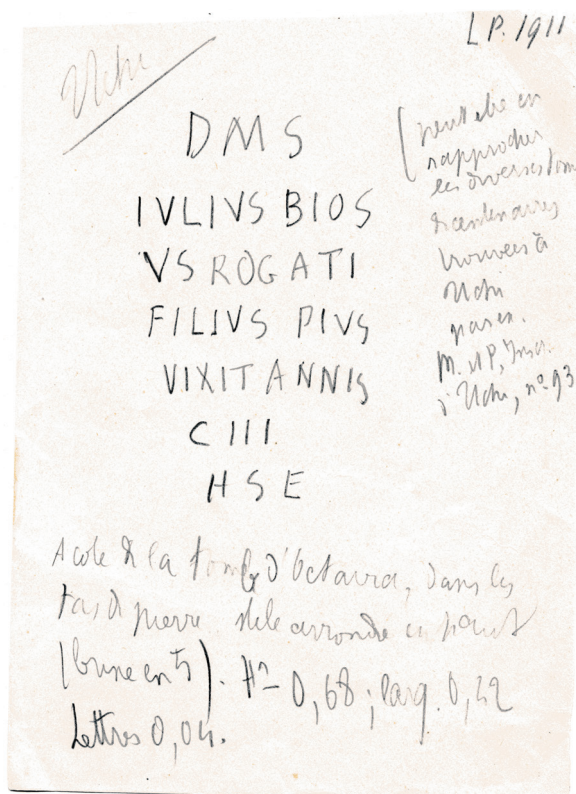 L.P. 1911
Uchi
DMS
IVLIVS BIOS
VS ROGATI
FILIVS PIVS
VIXIT ANNIS
C III
H S E
(peut être en
rapprocher
les diverses
centenaires
trouvées à
Uchi
par ex.
M. et P, Inscr.
d'Uchi, nº 93
A côté de la tombe d'Octavia, dans les
tas de pierre stèle arrondie en haut
(brisée en 5). Hr 0,68; larg. 0,42
Lettres 0,04.